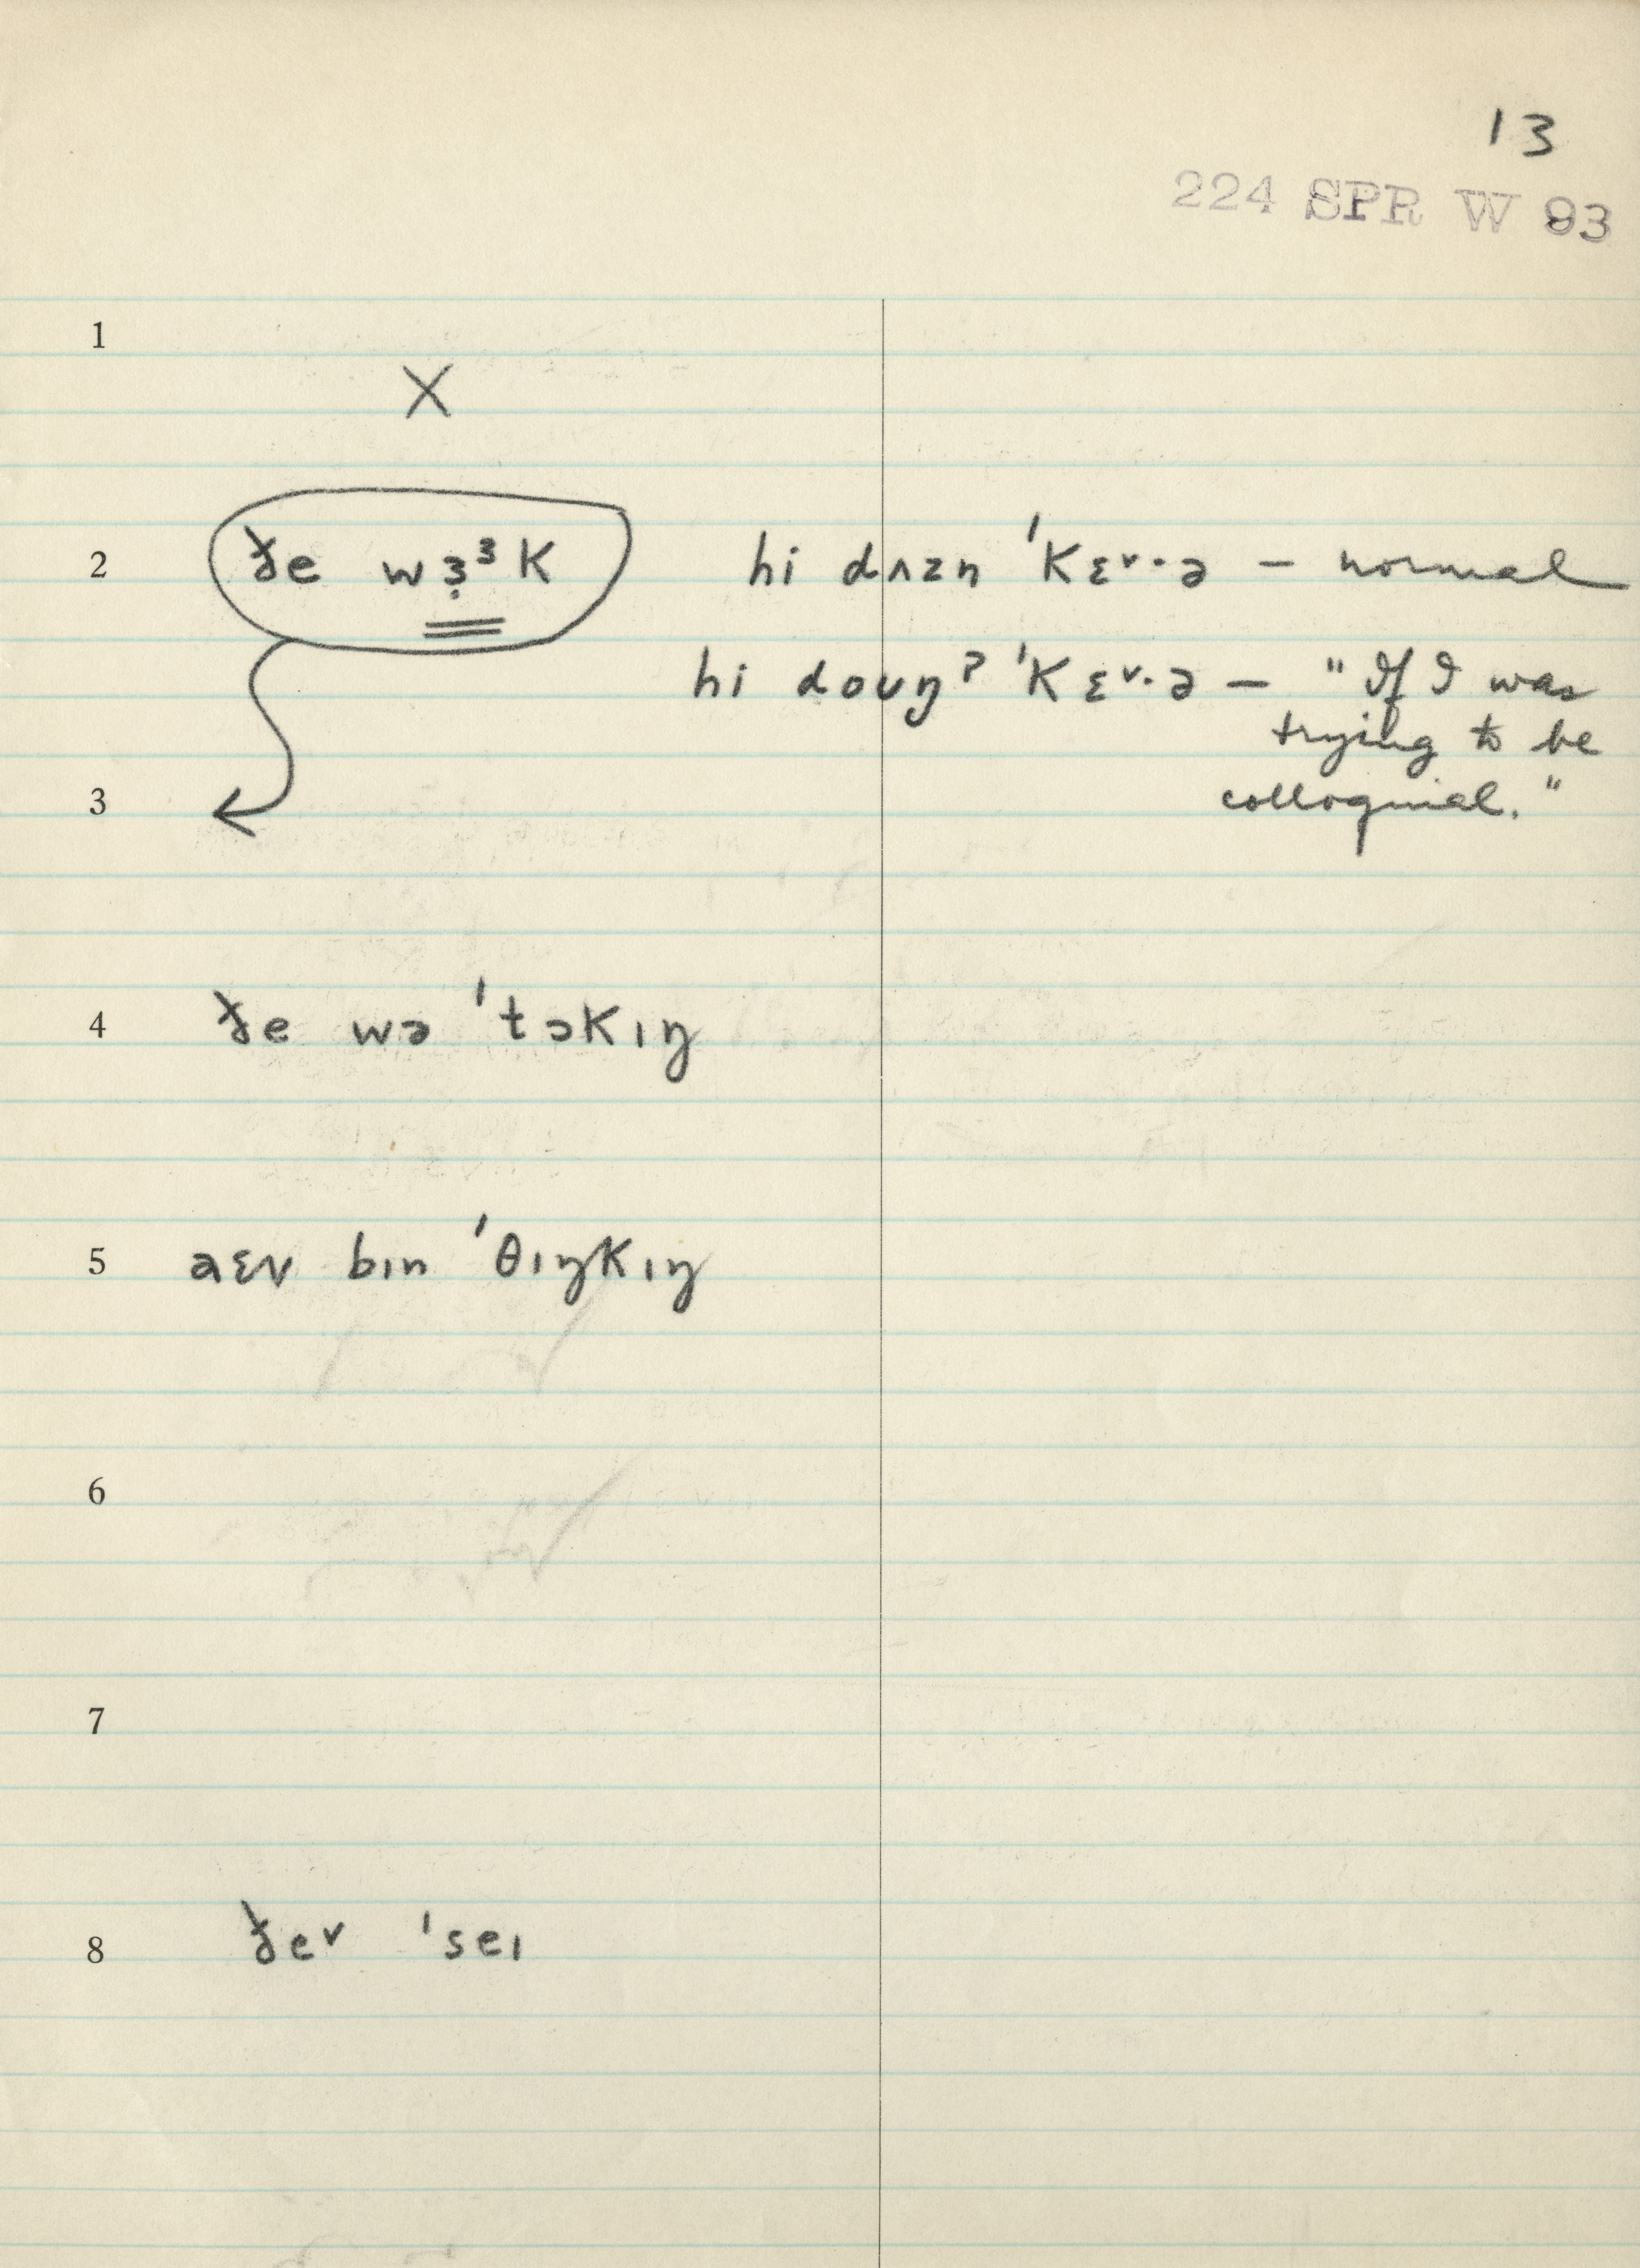 13
224 SPR W 93
1
X
2 ðe wɜ̣ᶟk hi dʌzn ˈkɛ˅·ə – normal
hi doʊŋˀ ˈkɛ˅·ə – "If I was
trying to be
3 colloquial."
4 ðe wə ˈtɔkɪŋ
5 aɛv bɪn ˈθɪŋkɪŋ
6
7
8 ðe˅ ˈseɪ